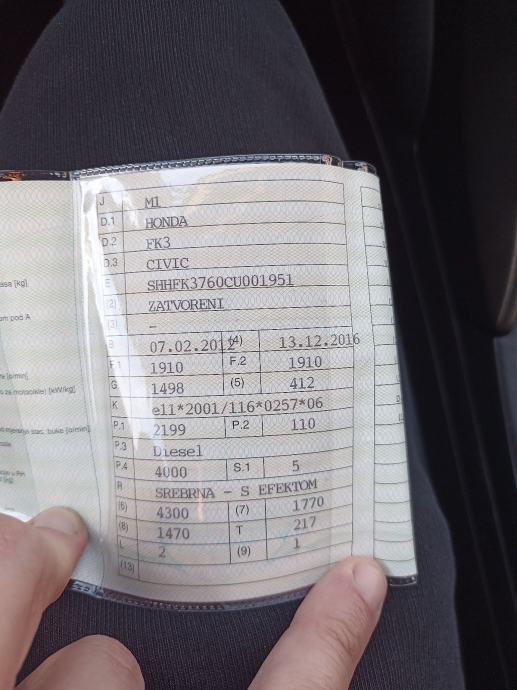 J M1
D.1 HONDA
D.2 FK3
D.3 CIVIC
E SHHFK3760CU001951
(2) ZATVORENI
(3) -
B 07.02.2012 (4) 13.12.2016
F.1 1910 F.2 1910
G 1498 (5) 412
K e11*2001/116*0257*06
P.1 2199 P.2 110
P.3 Diesel
P.4 4000 S.1 5
R SREBRNA - S EFEKTOM
(6) 4300 (7) 1770
(8) 1470 T 217
L 2 (9) 1
(13)
[kg]
pod A